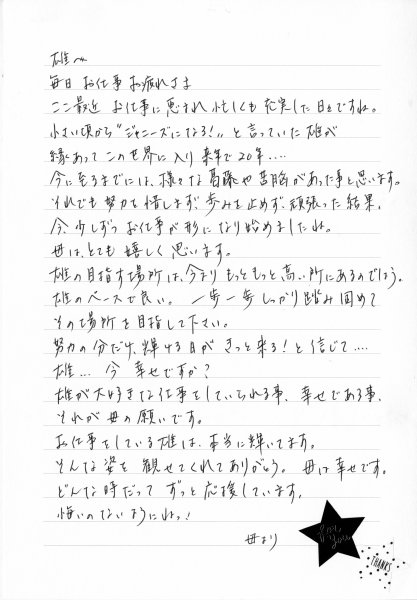 雄へ
毎日 お仕事 お疲れさま
ここ最近 お仕事に恵まれ 忙しくも 充実した日々ですね。
小さい頃から"ジャニーズになる!"と言っていた雄が
縁あって この世界に入り 来年で20年....
今に至るまでには、様々な葛藤や苦悩があった事と思います。
それでも努力を惜しまず、歩みを止めず、頑張った結果、
今、少しずつ お仕事が形になり始めましたね。
母は、とても 嬉しく 思います。
雄の目指す場所は、今より もっともっと高い所にあるのでしょう。
雄のペースで良い。 一歩一歩 しっかり踏み固めて
その場所を目指して下さい。
努力の分だけ、輝ける日が きっと来る!と信じて....
雄... 今 幸せですか?
雄が大好きな仕事をしていられる事、幸せである事、
それが母の願いです。
お仕事をしている雄は、本当に輝いてます。
そんな姿を 観せてくれてありがとう。 母は幸せです。
どんな時だって ずっと応援しています。
悔いのないようにねっ!
母より
For You
THANKS